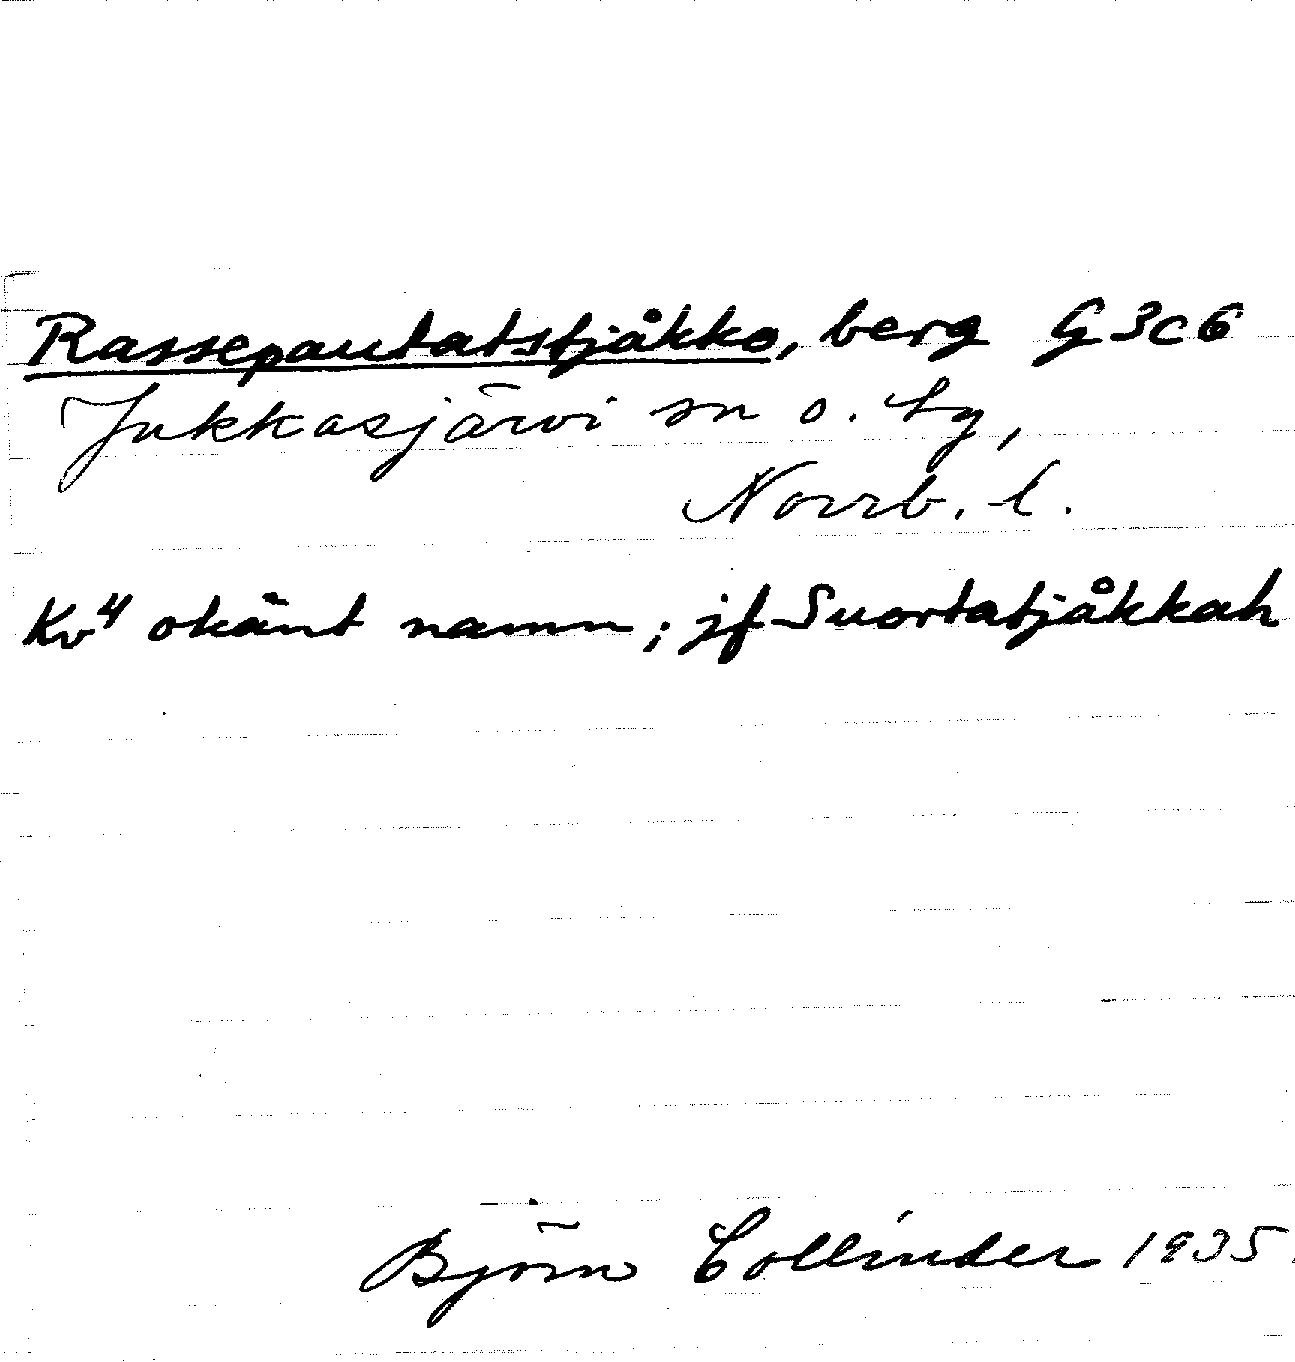 Rassepautatstjåkko, berg G3c6
Jukkasjärvi sn o. tg,
Norrb. l.
Kv⁴ okänt namn; jf Suortatjåkkah
Björn Collinder 1935.